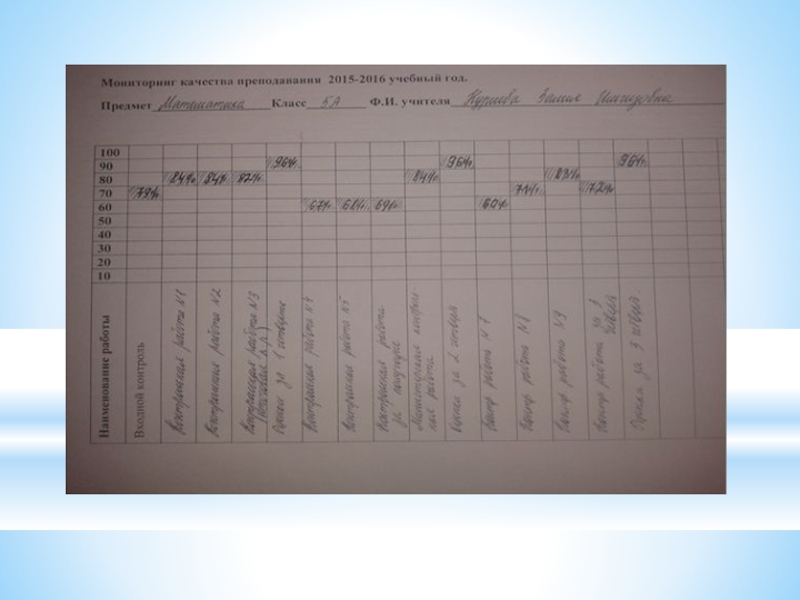 Мониторинг качества преподавания 2015-2016 учебный год.
Предмет Математика Класс 5А Ф.И. учителя
100
90 96% 96% 96%
80 84% 84% 82% 84% 83%
70 79% 71% 72%
60 67% 68% 69% 60%
50
40
30
20
10
Наименование работы
Входной контроль
Контрольная работа №1
Контрольная работа №2
Контрольная работа №3
Оценки за 1 четверть
Контрольная работа №4
Контрольная работа №5
Контрольная работа
за полугодие
контроль-
ная работа
Оценки за 2 четверть
Контр работа №7
Контр работа №8
Контр работа №9
Контр работа за 3
Оценки за 3 четвер.